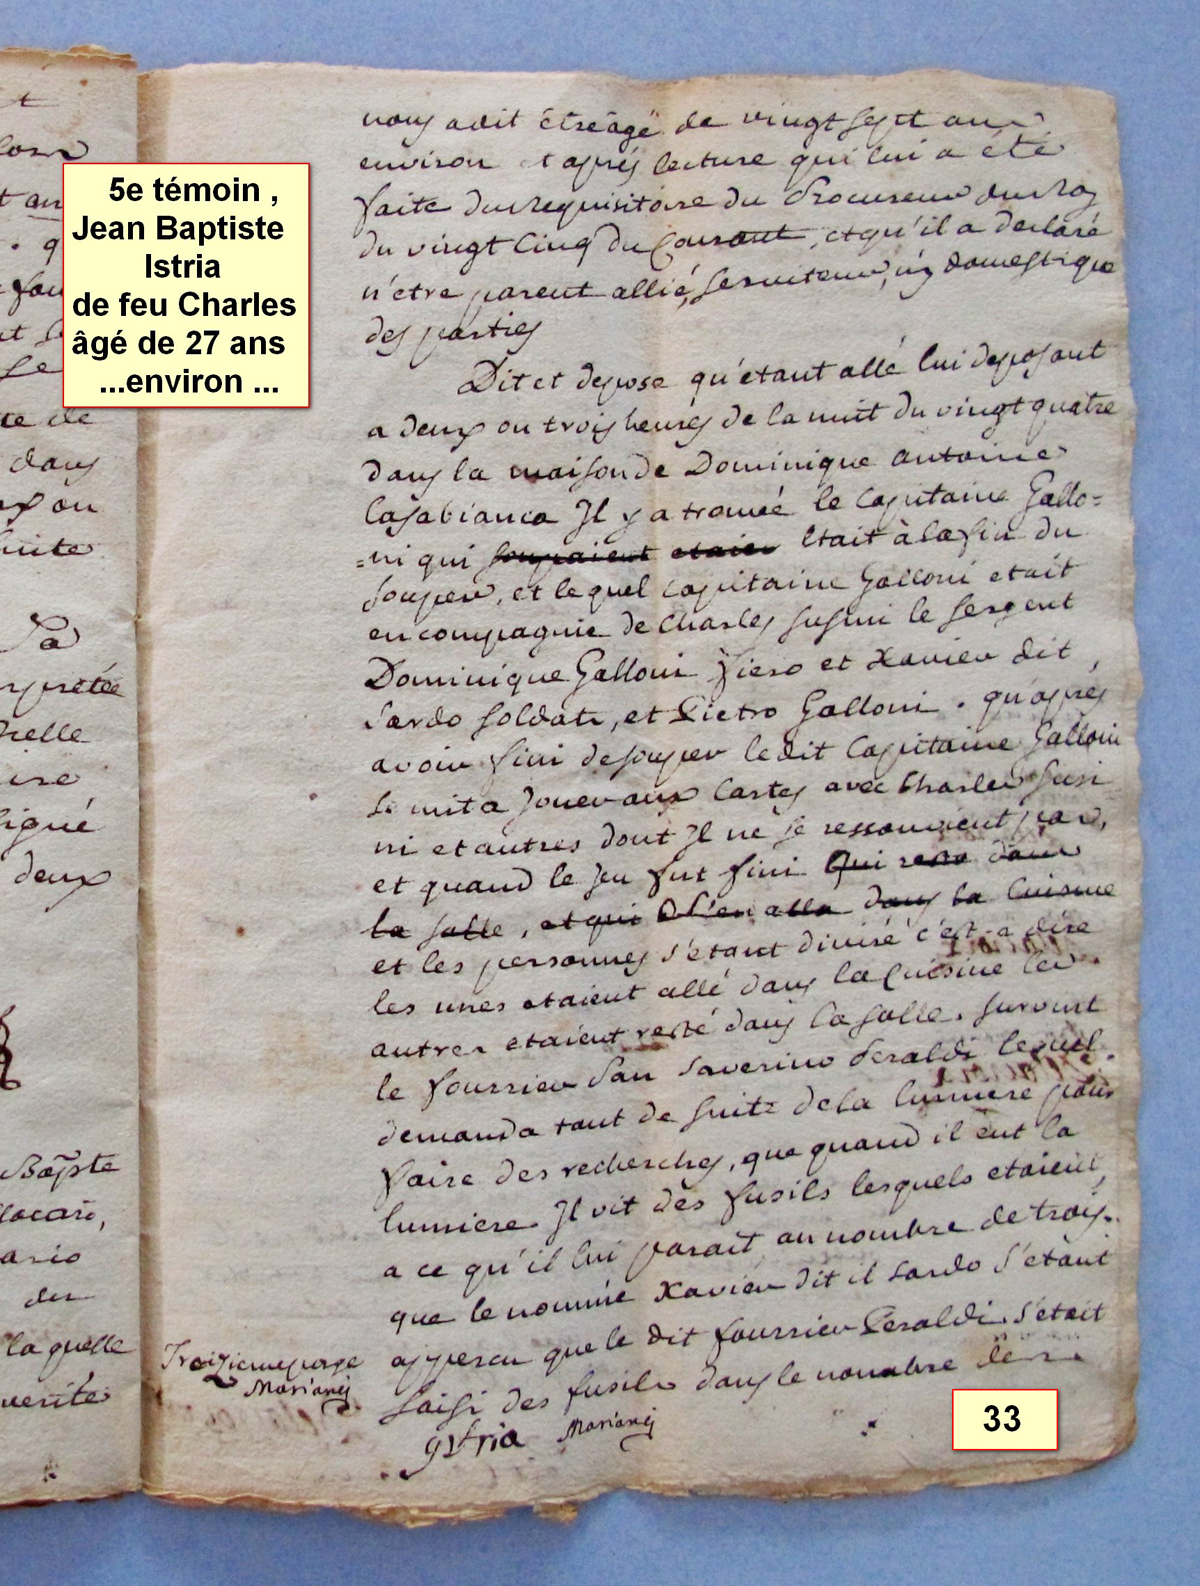 5e témoin ,
Jean Baptiste
Istria
de feu Charles
âgé de 27 ans
...environ ...
nous a dit être agé de vingt sept ans
environ et aprés lecture qui lui a été
faite du requisitoire du Procureur du Roy
du vingt Cinq du Courant, et qu'il a declaré
n'etre parent allié, serviteur, ny domestique
des parties
Dit et depose qu'étant allé lui deposant
a deux ou trois heures de la nuit du vingt quatre
dans la maison de Dominique antoine
Casabianca Il y a trouvé le Capitaine Gallo=
=ni qui soupaient etaien Etait à la fin du
souper, et le quel Capitaine Galloni etait
en compagnie de Charles Susini le sergent
Dominique Galloni Piero et Xavier dit
Sardo soldats, et Pietro Galloni. qu'aprés
avoir fini de souper le dit Capitaine Galloni
se mit a Jouer aux Cartes avec Charles Susi
ni et autres dont Il ne se ressouvient pas,
et quand le Jeu fut fini Qui resta dans
la salle, et qui s'en alla dans la Cuisine
et les personnes s'etant divisé c'est a dire
les unes etaient allé dans la Cuisine les
autres etaient resté dans la salle. survint
le fourrier San Saverino Peraldi lequel
demanda tout de suite de la lumiere pour
faire des recherches, que quand il eut la
lumiere Il vit des fusils lesquels etaient,
a ce qu'il lui parait au nombre de trois.
que le nommé Xavier dit il Sardo s'étant
apperçu que le dit fourrier Peraldi s'etait
saisi des fusils dans le nombre
Istria Mariani
Troizieme page
Mariani
33
dans
deux
Baptiste
la quelle
verité